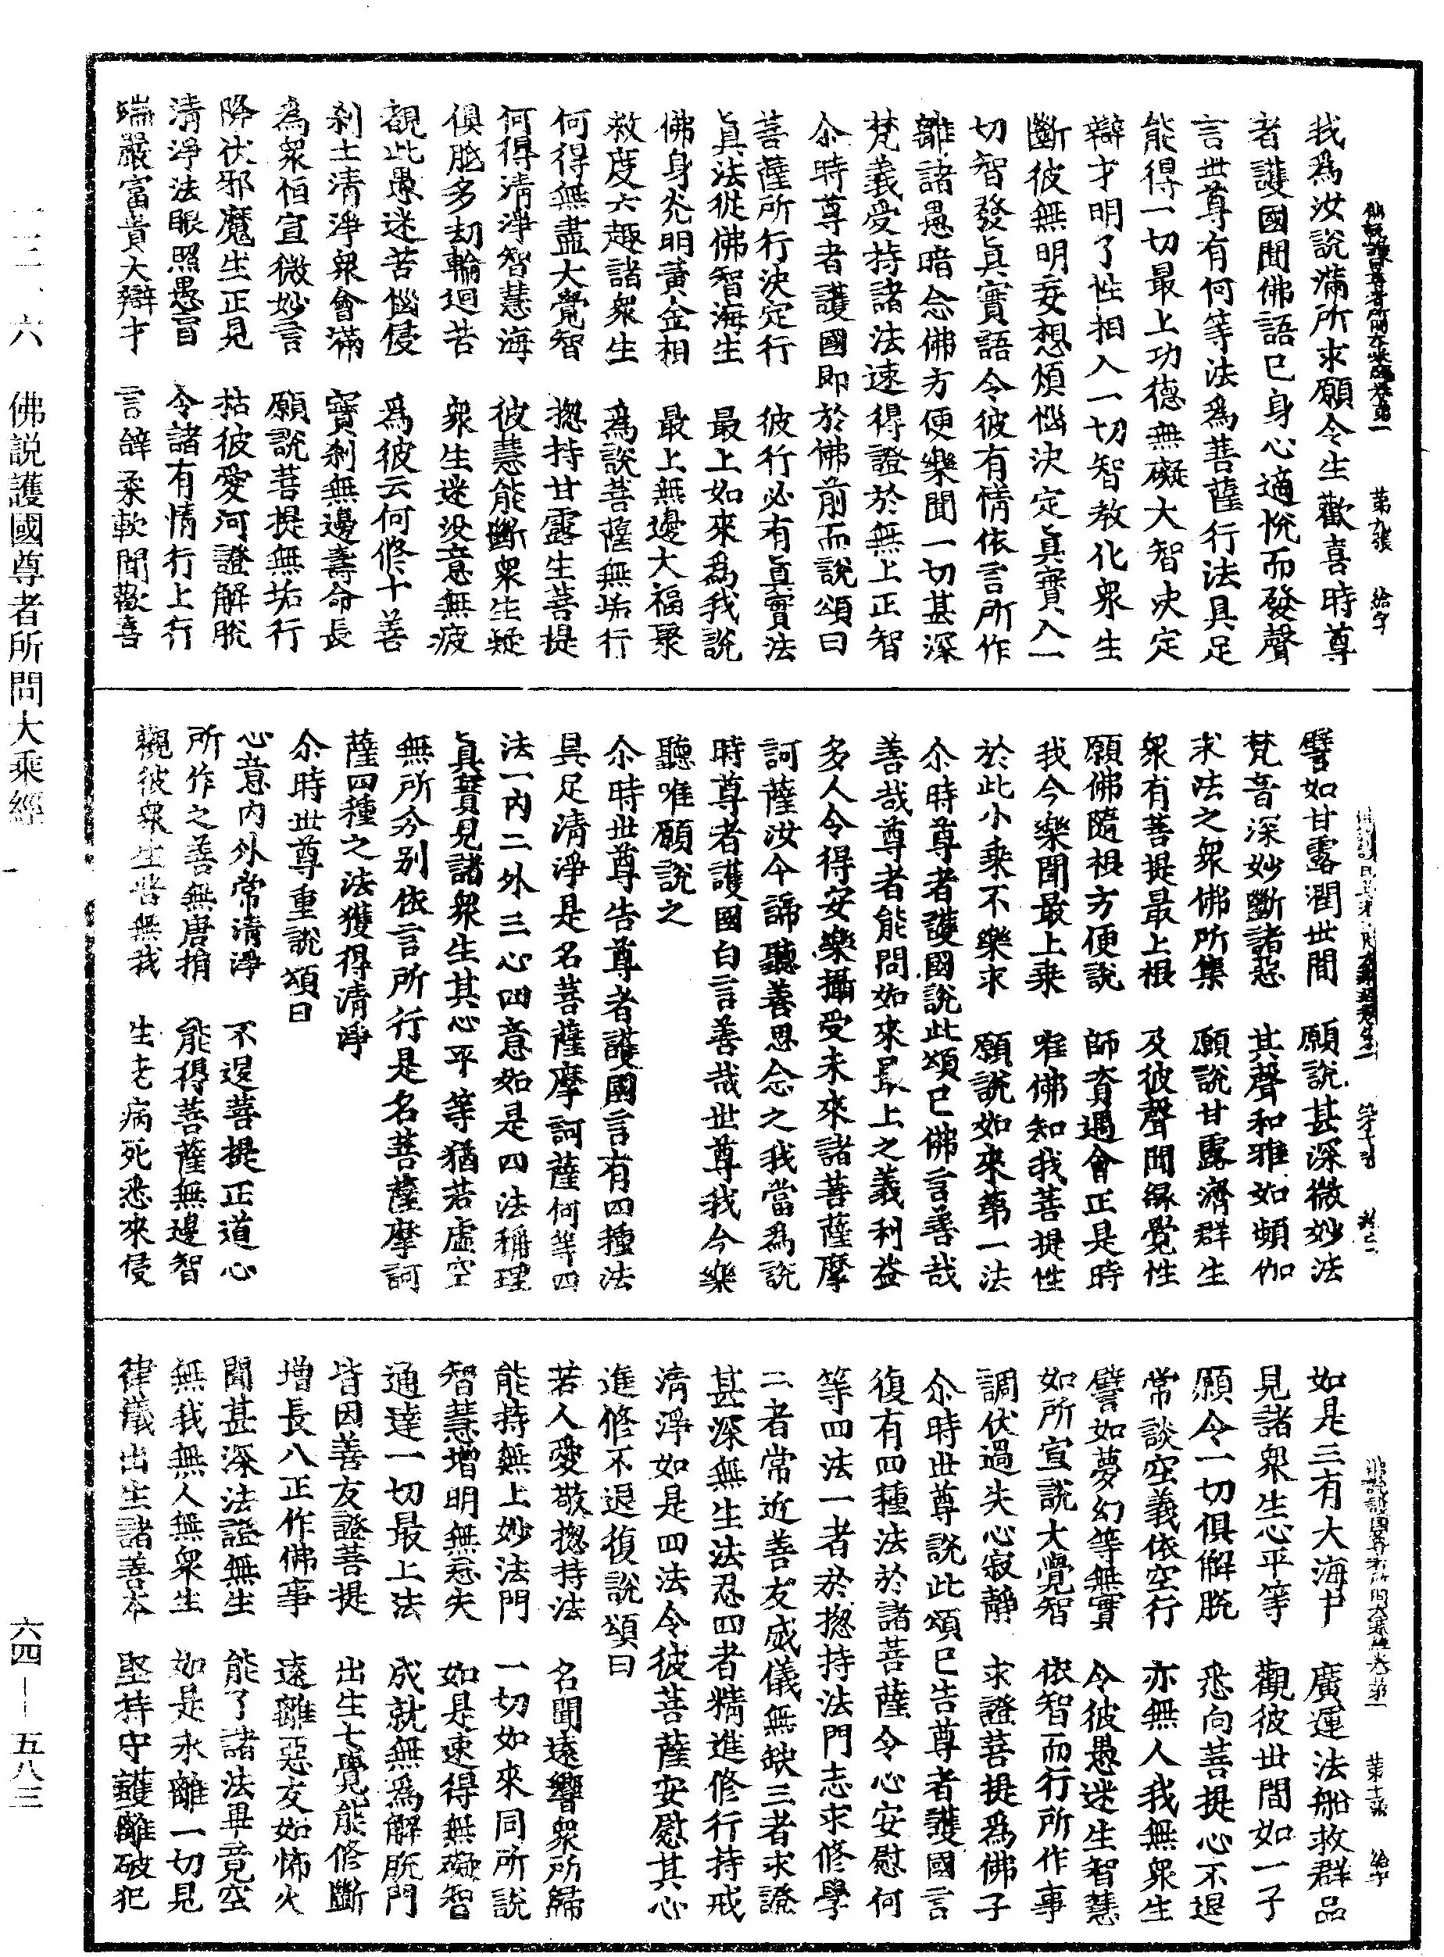 我爲汝說滿所求願令生歡喜時尊
者護國聞佛語已身心適悅而發聲
言世尊有何等法爲菩薩行法具足
能得一切最上功德無礙大智決定
辯才明了性相入一切智教化衆生
斷彼無明妄想煩惱決定眞實入一
切智發眞實語令彼有情依言所作
離諸愚暗念佛方便樂聞一切甚深
梵義受持諸法速得證於無上正智
尒時尊者護國即於佛前而說頌曰
菩薩所行決定行 彼行必有眞實法
眞法從佛智海生 最上如來爲我說
佛身光明黃金相 最上無邊大福聚
救度六趣諸衆生 爲說菩薩無垢行
何得無盡大覺智 揔持甘露生菩提
何得清淨智慧海 彼慧能斷衆生疑
俱胝多劫輪迴苦 衆生迷没意無疲
覩此愚迷苦惱侵 爲彼云何修十善
剎土清淨衆會滿 寶剎無邊壽命長
爲衆恒宣微妙言 願說菩提無垢行
降伏邪魔生正見 枯彼愛河證解脫
清淨法眼照愚盲 令諸有情行上行
端嚴富貴大辯才 言辭柔軟聞歡喜
譬如甘露潤世間 願說甚深微妙法
梵音深妙斷諸惡 其聲和雅如頻伽
求法之衆佛所集 願說甘露濟群生
衆有菩提最上根 及彼聲聞緣覺性
願佛隨根方便說 師資遇會正是時
我今樂聞最上乘 唯佛知我菩提性
於此小乘不樂求 願說如來第一法
尒時尊者護國說此頌已佛言善哉
善哉尊者能問如來最上之義利益
多人令得安樂攝受未來諸菩薩摩
訶薩汝今諦聽善思念之我當爲說
時尊者護國白言善哉世尊我今樂
聽唯願說之
尒時世尊告尊者護國言有四種法
具足清淨是名菩薩摩訶薩何等四
法一內二外三心四意如是四法稱理
眞實見諸衆生其心平等猶若虛空
無所分別依言所行是名菩薩摩訶
薩四種之法獲得清淨
尒時世尊重說頌曰
心意內外常清淨 不退菩提正道心
所作之善無唐捐 能得菩薩無邊智
觀彼衆生皆無我 生老病死悉來侵
如是三有大海中 廣運法船救群品
見諸衆生心平等 觀彼世間如一子
願令一切俱解脫 悉向菩提心不退
常談空義依空行 亦無人我無衆生
譬如夢幻等無實 令彼愚迷生智慧
如所宣說大覺智 依智而行所作事
調伏過失心寂靜 求證菩提爲佛子
尒時世尊說此頌已告尊者護國言
復有四種法於諸菩薩令心安慰何
等四法一者於揔持法門志求修學
二者常近善友威儀無缺三者求證
甚深無生法忍四者精進修行持戒
清淨如是四法令彼菩薩安慰其心
進修不退復說頌曰
若人愛敬揔持法 名聞遠響衆所歸
能持無上妙法門 一切如來同所說
智慧增明無忘失 如是速得無礙智
通達一切最上法 成就無爲解脫門
皆因善友證菩提 出生七覺能修斷
增長八正作佛事 遠離惡友如怖火
聞甚深法證無生 能了諸法畢竟空
無我無人無衆生 如是永離一切見
律儀出生諸善本 堅持守護離破犯
二三、六 佛說護國尊者所問大乘經
六四—五八三